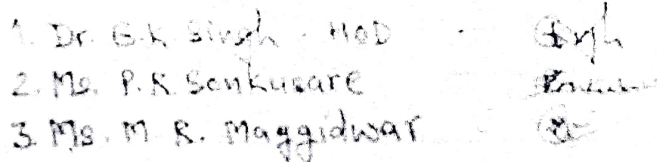 1. Dr. G.K Singh - HOD - Singh
2. Ms. P. R Sonkusare
3. Ms. M R. Maggidwar